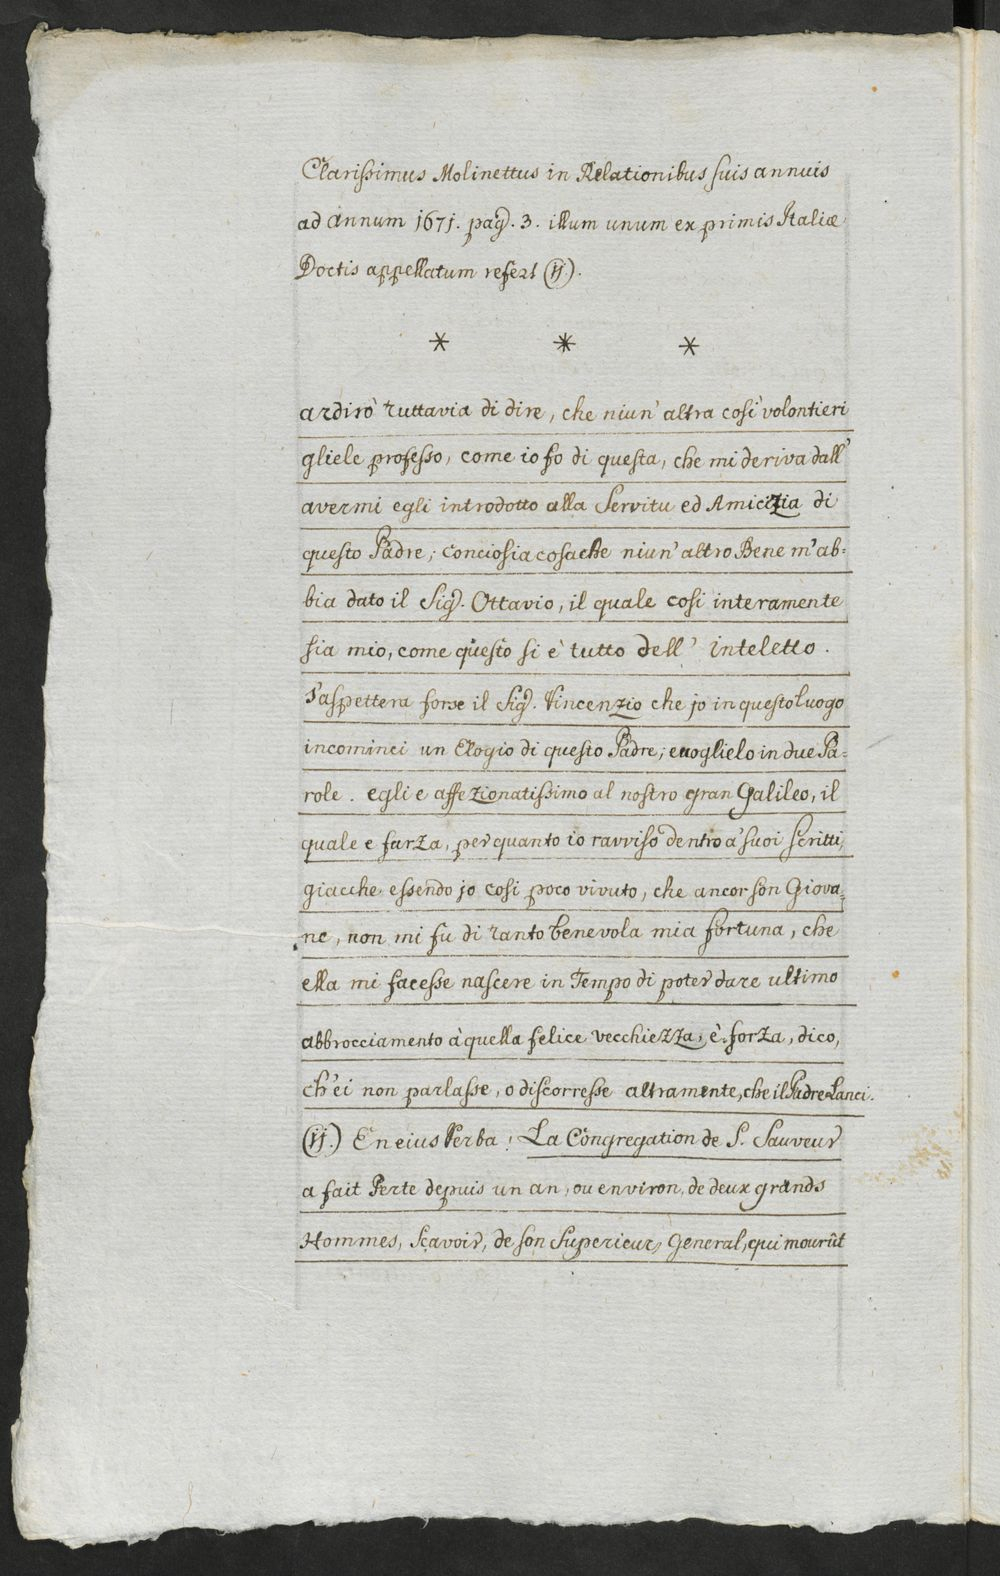 Clarissimus Molinettus in Relationibus suis annuis
ad annum 1671. pag. 3. illum unum ex primis Italiæ
Doctis appellatum refert (ij).
* * *
ardirò tuttavia di dire, che niun' altra così volontieri
gliele professo, come io fo di questa, che mi deriva dall'
avermi egli introdotto alla Servitu ed Amicizia di
questo Padre; conciosiacosache niun' altro Bene m' ab=
bia dato il Sig. Ottavio, il quale cosi interamente
sia mio, come questo si è tutto dell' inteletto.
s'aspettera forse il Sig. Vincenzio che jo in questo luogo
incominci un Elogio di questo Padre; e voglielo in due Pa=
role. egli e affezionatissimo al nostro gran Galileo, il
quale e farza, per quanto io ravviso dentro a' suoi scritti,
giacche essendo jo cosi poco vivuto, che ancor son Giova=
ne, non mi fu di tanto benevola mia fortuna, che
ella mi facesse nascere in Tempo di poter dare ultimo
abbrocciamento à quella felice vecchiezza, è forza, dico,
ch'ei non parlasse, o discorresse altramente, che il Padre Lanci.
(ij.) En eius Verba: La Congregation de S. Sauveur
a fait Perte depuis un an, ou environ, de deux grands
Hommes, Scavoir, de son Superieur General, qui mourût